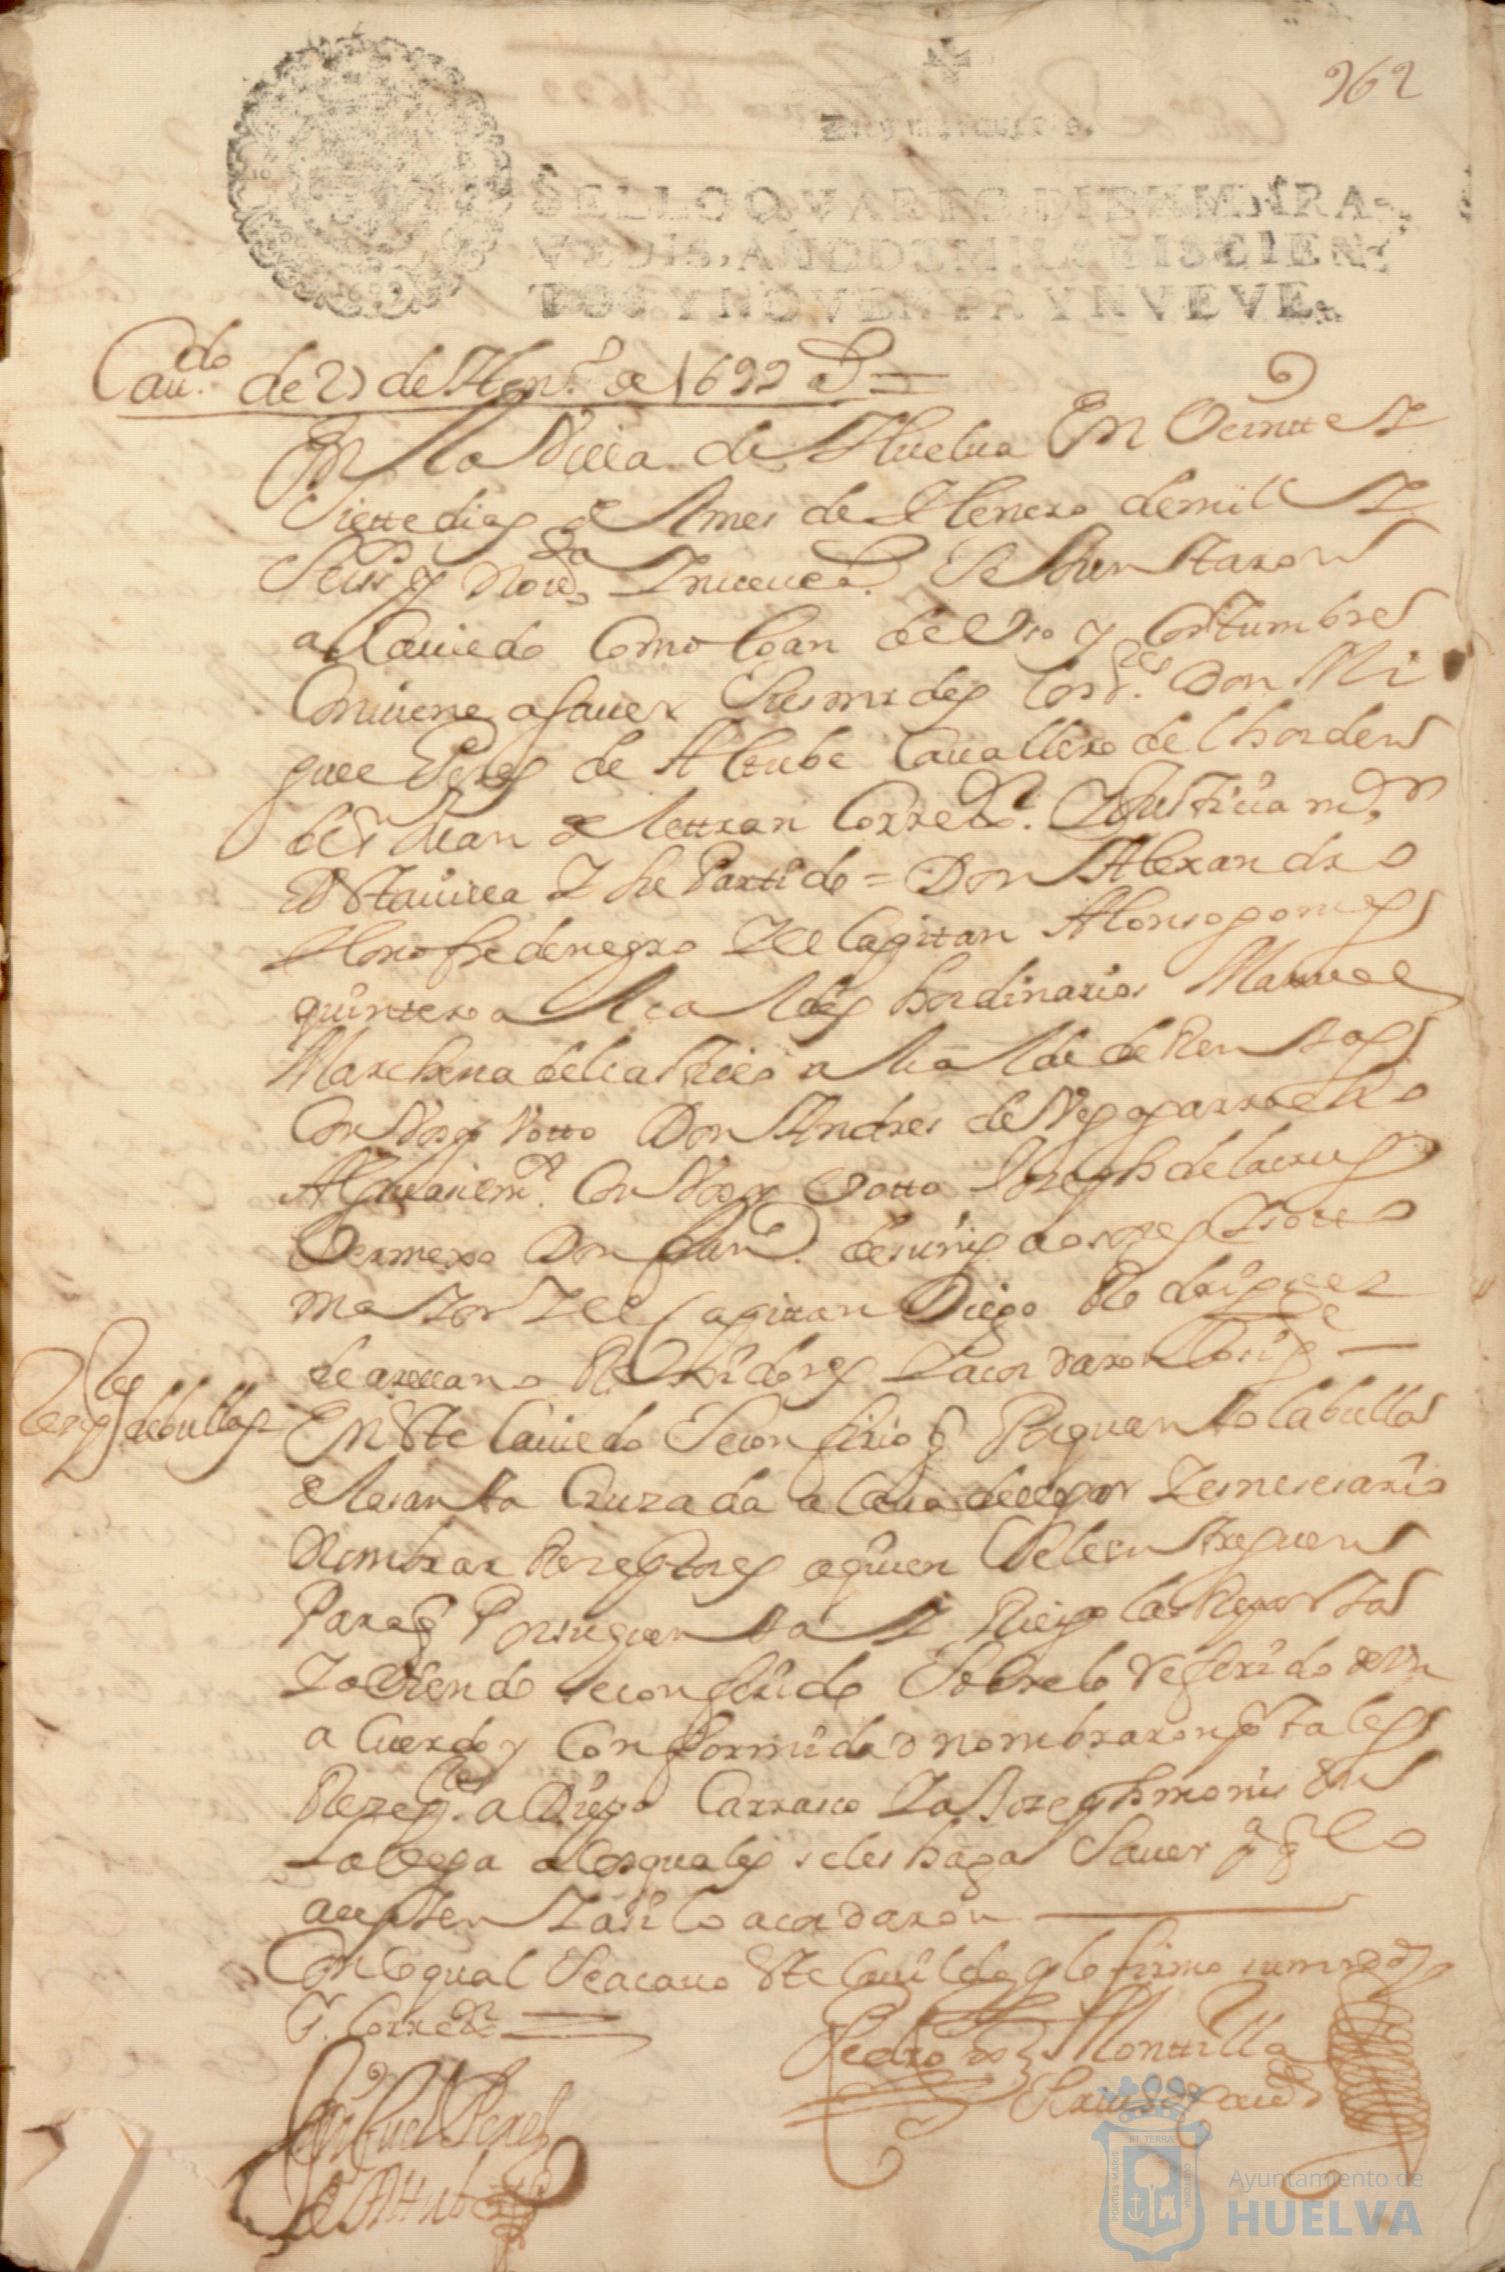 962
SELLO QVARTO, DIEZ MARA-
VEDIS, AÑO DE MIL Y SEISCIEN-
TOS Y NOVENTA Y NVEVE.
Cau.do de 27 de Hen.o de 1699 a.s =
En la Villa de Huelua En Veintte y
Siette dias del mes de Henero de mil y
Seis.s y nov.ta y nueue a.s Se Juntaron
a Cauildo Como lo an de Vso y Costumbre
Conuiene a sauer Sus mrdes los s.res Don Mi
guel Peres de Altube Cauallero del horden
de s.r Juan de lettran Corre.or y Justicia m.or
de Esta uilla y su Partido = Don Alexandro
Honofre de negro y el Capitan Alonso gomes
quintero alcaldes hordinarios Manuel
Marchena del castillo alcalde de Rentas
Con Vos y Votto Don Andres de Vega garrocho
Alguacil m.or Con Vos y Votto Joseph de la cruz
Vermexo Don Juan de suñiga osores
mayor y el Capittan Diego Rodrigues
de arellano Rexidores y acordaron lo sig.te
Rezep.res de bullas
En Este Cauildo Se confirio q Por quanto las bullas
de la santa Cruzada a de llegar y es nesesario
Nombrar Rezeptores a quien Se le entreguen
Para q Por su quenta y Riesgo las Repartan
y abiendo se conferido Sobre lo Referido de Vn
a Cuerdo y Conformidad nombraron por tales
Rezep.res a Diego Carrasco y a Joseph monis
a los quales se les haga Sauer p.a q lo
acepten y asi lo acordaron
Con lo qual Se acauo Este Cauildo q lo firmo su mrd
S.r Corre.or =
Miguel Peres
de Altube
Pedro de Montilla
Ayuntamiento de
HUELVA